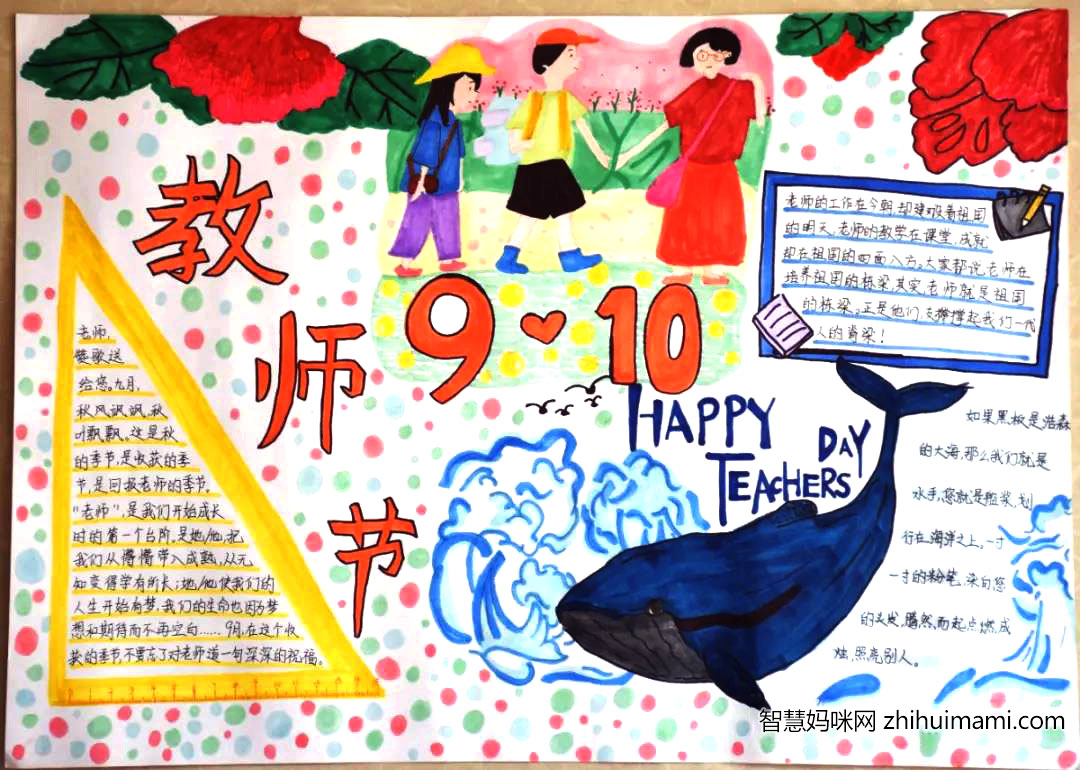 教
师
节
9 10
HAPPY
TEACHERS
DAY
老师,
赞歌送
给您。九月,
秋风飒飒,秋
叶飘飘。这是秋
的季节,是收获的季
节,是回报老师的季节。
“老师”,是我们开始成长
时的第一个台阶,是她/他,把
我们从懵懂带入成熟,从无
知变得学有所长;她/他使我们的
人生开始有梦,我们的生命也因为梦
想和期待而不再空白……9月,在这个收
获的季节,不要忘了对老师道一句深深的祝福。
老师的工作在今朝,却建设着祖国
的明天,老师的教学在课堂,成就
却在祖国的四面八方。大家都说老师在
培养祖国的栋梁,其实,老师就是祖国
的栋梁。正是他们,支撑撑起我们一代
人的脊梁!
如果黑板是浩淼
的大海,那么我们就是
水手,您就是船桨,划
行在海洋之上。一寸
一寸的粉笔,染白您
的头发,腾然,而起点燃成
烛,照亮别人。
智慧妈咪网 zhihuimami.com